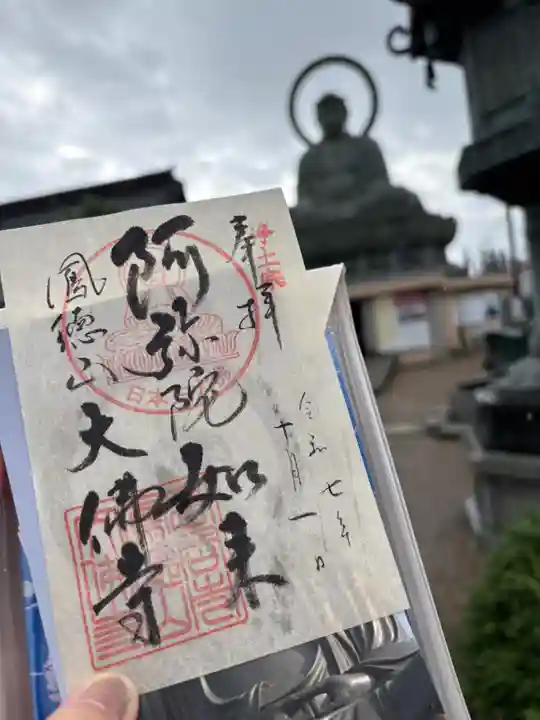 奉拝
浄土宗
令和七年
十月一日
阿弥陀如来
日本
鳳徳山大佛寺